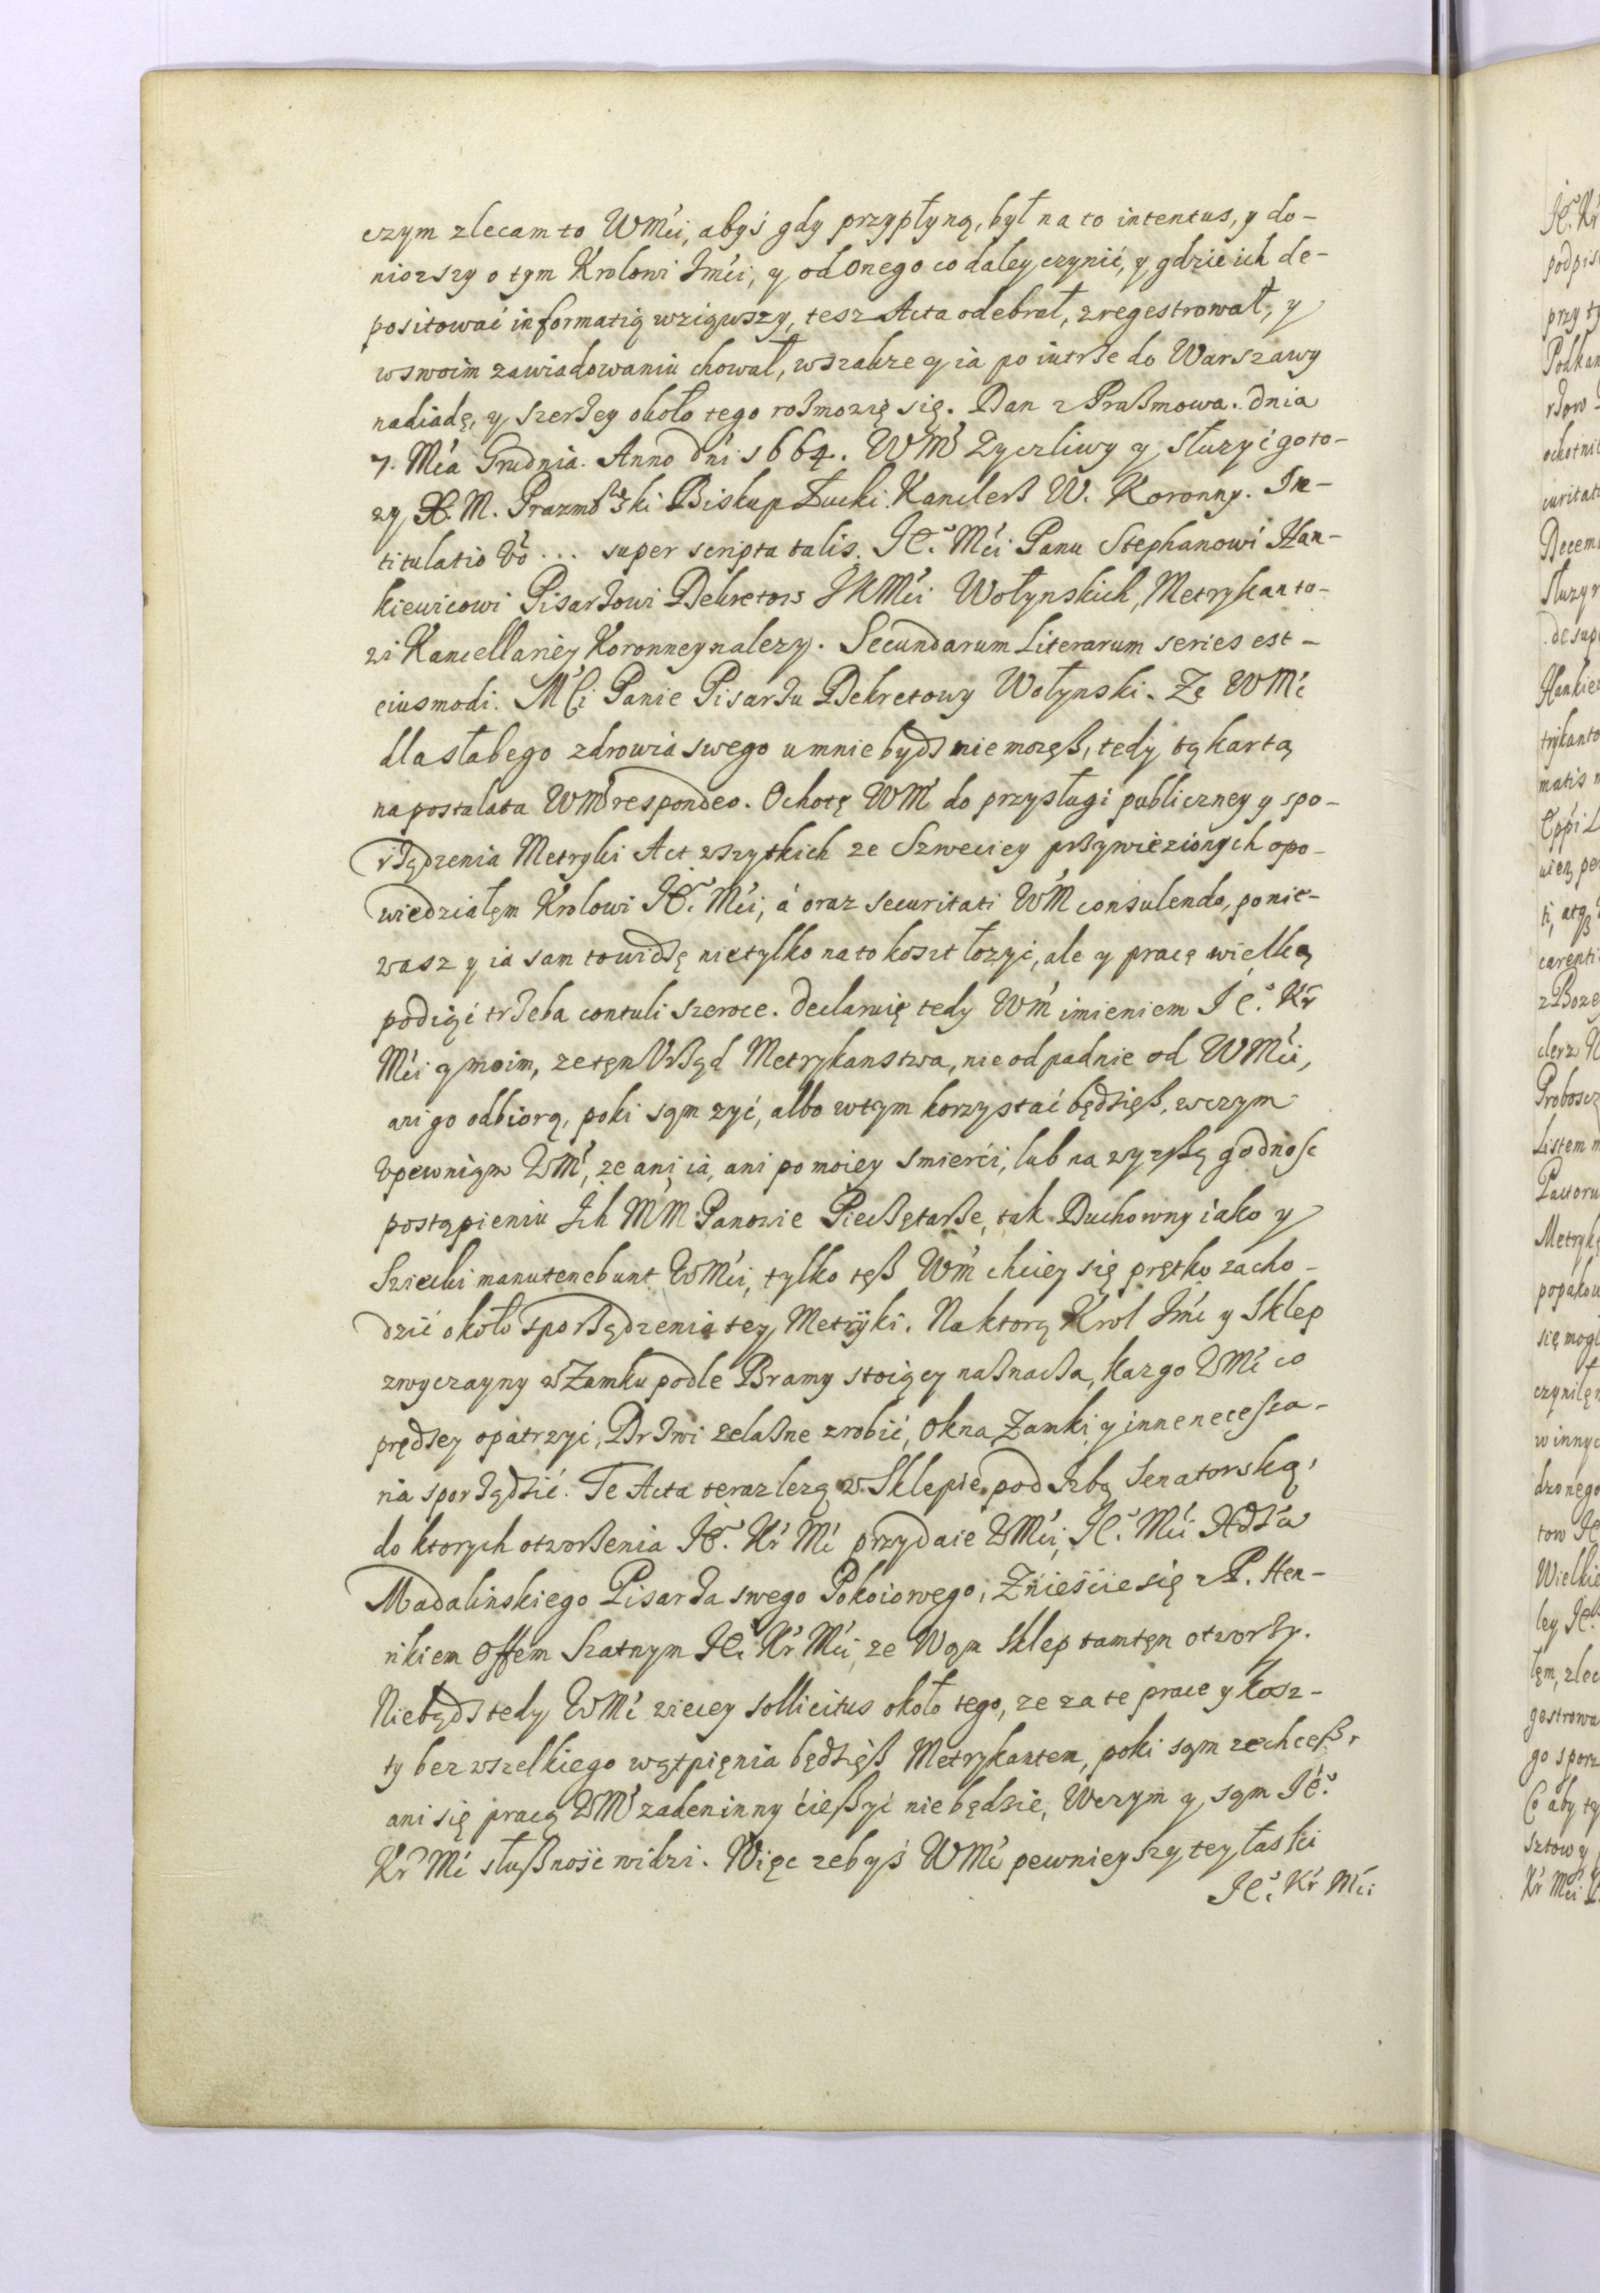 czym zlecam to WMći, abyś gdy przypłyną, był na to intentus, y do-
niozszy o tym Krolowi Jmći, y od Onego co daley czynić, y gdzie ich de-
positować informatią wziąwszy, tesz Acta odebrał, zregestrował, y
w swoim zawiadowaniu chował, wszakze y ia po iutrze do Warszawy
nadiadę, y szerzey około tego rosmozię się. Dan z Praßmowa. dnia
7. Mća Grudnia. Anno dńi 1664. WMć Zyczliwy y słuzyć goto-
zy X. M. Prazmoski Biskup Łucki Kanclerß W. Koronny. In-
titulatio Vo ... super scripta talis. Je° Mći Panu Stephanowi Han-
kiewicowi Pisarzowi Dekretow JKMći Wołynskich, Metrykanto-
zi Kancellariey Koronney nalezy. Secundarum Literarum series est -
eiusmodi. Mći Panie Pisarzu Dekretowy Wołynski. Ze WMć
dla słabego zdrowia swego u mnie bydz nie mozęß, tedy tą kartą
na postulata WMć respondeo. Ochotę WM do przysługi publiczney y spo-
rządzenia Metryki Act wszytkich ze Szweciey przywiezionych opo-
wiedziałęm Krolowi Je° Mći, á oraz securitati WM consulendo, ponie-
wasz y ia sam to widzę nie tylko na to koszt łozyć, ale y pracę wielką
podiąć trzeba contuli szeroce. declaruię tedy WM imieniem Je° Kr
Mći y moim, ze tęn Urząd Metrykanstwa, nie odpadnie od WMći,
ani go odbiorą, poki sąm zyć, albo w tym korzystać będzięß, w czym
Upewniąm WMć, ze ani ia, ani po moiey smierći, lub na wyzßą godnośc
postąpieniu Ich MM Panowie Pieczętarze, tak Duchowny iako y
Swiecki manutenebunt WMći, tylko tęß WM chciey się prętko zacho-
dzić około sporządzenia tey Metryki. Na ktorą Krol Jmć y Sklep
zwyczayny w Zamku podle Bramy stoiący naznacza, kaz go WMć co
prędzey opatrzyć, Drzwi zelazne zrobić, Okna, Zamki, y inne necessa-
ria sporządzić. Te Acta teraz lezą w Sklepie pod Izbą Senatorską,
do ktorych otworzenia Je° Kr Mć przydaie WMći, Je° Mći
Madalinskiego Pisarza swego Pokoiowego, Znieście się z P. Hen-
rikiem Offem Szatnym Je° Kr Mći, ze Wąm Sklep tamtęn otworzy.
Niebądz tedy WMć wiecey sollicitus około tego, ze za te prace y kosz-
ty bez wszelkiego wątpięnia będzięß Metrykantem, poki sąm zechceß,
ani się pracą WMć zaden inny ćießyć nie będzie, W czym y sąm Je°
Kr Mć słußność widzi. Więc zebyś WMć pewnieyszy tey łaski
Je° Kr Mći